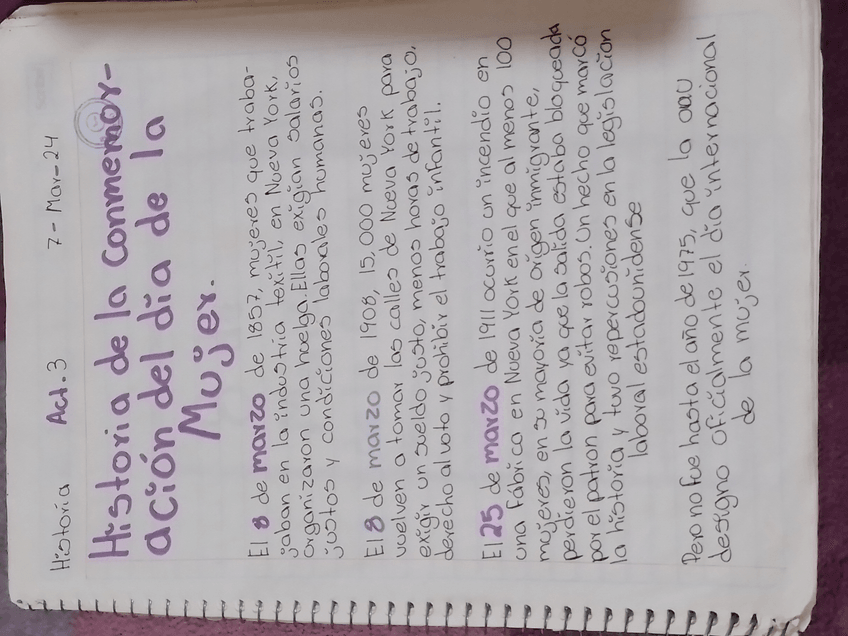 Historia Act. 3 7-Mar-24
Historia de la Conmemor-
ación del día de la
Mujer.
El 8 de marzo de 1857, mujeres que traba-
jaban en la industria textil, en Nueva York,
organizaron una huelga. Ellas exigían salarios
justos y condiciones laborales humanas.
El 8 de marzo de 1908, 15,000 mujeres
vuelven a tomar las calles de Nueva York para
exigir un sueldo justo, menos horas de trabajo,
derecho al voto y prohibir el trabajo infantil.
El 25 de marzo de 1911 ocurrio un incendio en
una fábrica en Nueva York en el que al menos 100
mujeres, en su mayoría de origen inmigrante,
perdieron la vida ya que la salida estaba bloqueada
por el patron para evitar robos. Un hecho que marcó
la historia y tuvo repercusiones en la legislacion
laboral estadounidense
Pero no fue hasta el año de 1975, que la ONU
designo oficialmente el dia internacional
de la mujer.